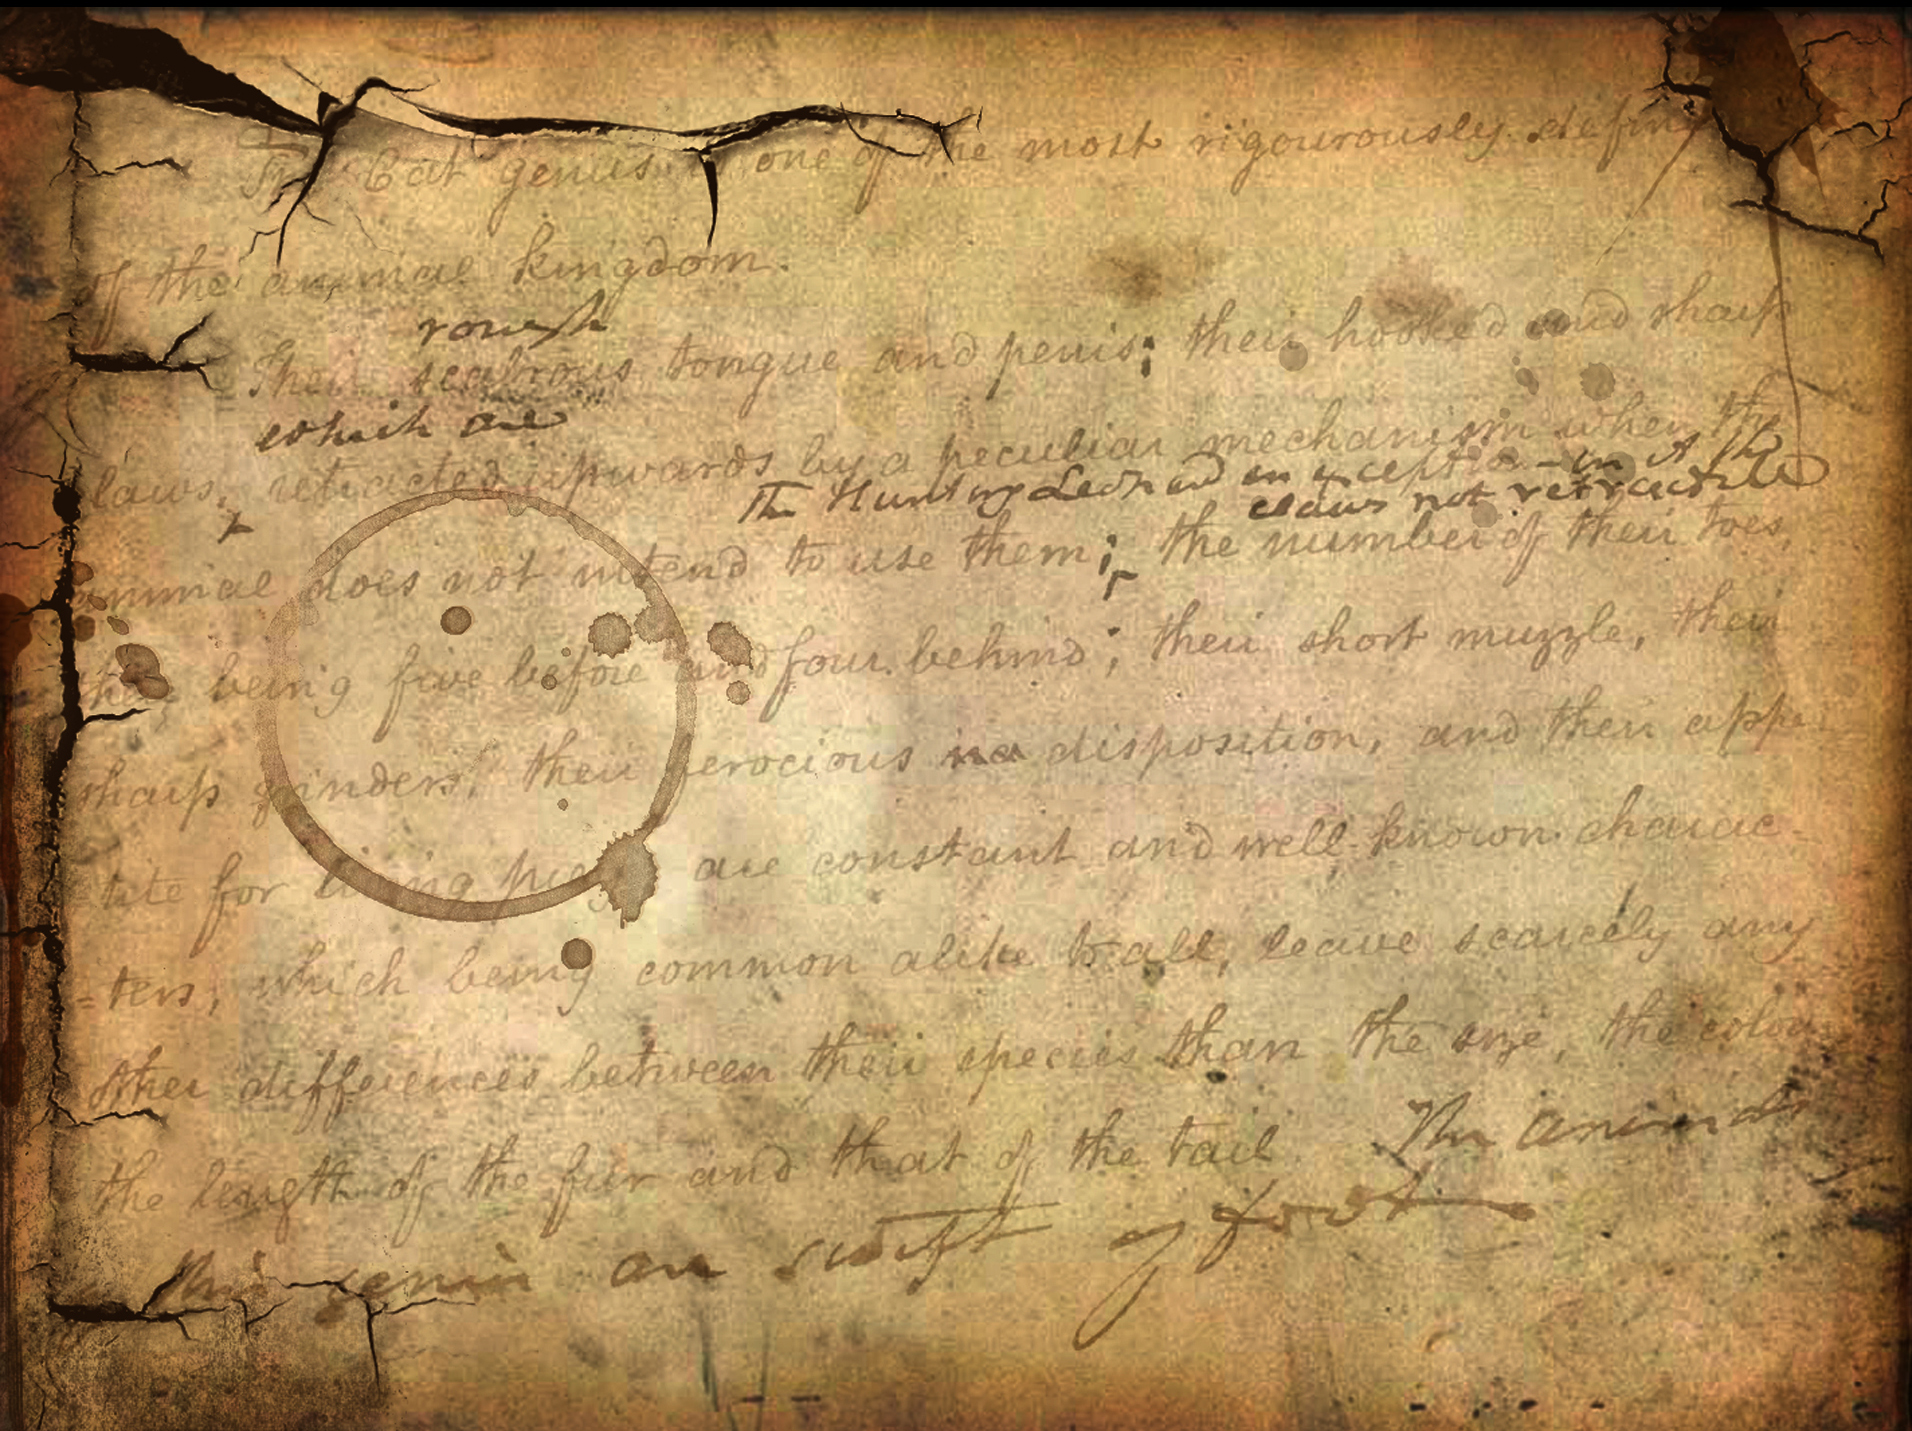 The Cat genus is one of the most rigourously defin
of the animal kingdom.
rough
Their scabrous tongue and penis; their hooked and sharp
which are
claws, retracted upwards by a peculiar mechanism when the
The Hunting Leopard an exception - in it the
claws not retractile
animal does not intend to use them; the number of their toes,
being five before and four behind; their short muzzle, their
sharp grinders, their ferocious disposition, and their appe
-tite for living prey are constant and well known charac-
=ters, which being common alike to all, leave scarcely any
other differences between their species than the size, the colou
the length of the fur and that of the tail. The animals
this genus are swift of foot